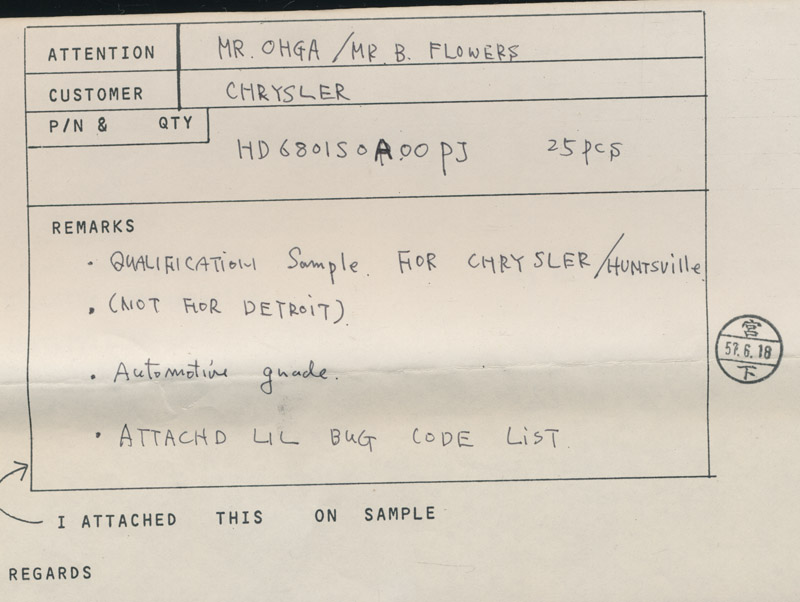 ATTENTION MR. OHGA / MR. B. FLOWERS
CUSTOMER CHRYSLER
P/N & QTY
HD6801S0A00PJ 25pcs
REMARKS
• QUALIFICATION Sample. FOR CHRYSLER/HUNTSVille
• (NOT FOR DETROiT).
• Automotive grade.
• ATTACHD LIL BUG CODE LiST.
宮
57.6.18
下
I ATTACHED THIS ON SAMPLE
REGARDS